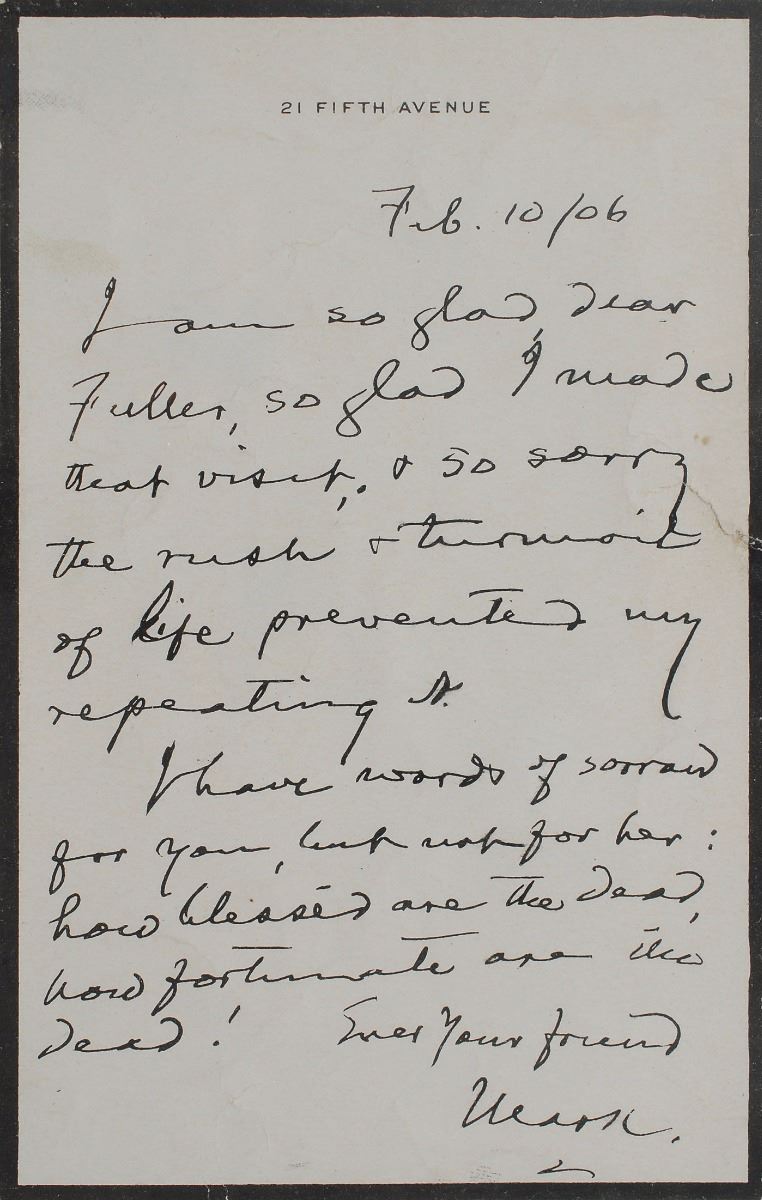 21 FIFTH AVENUE
Feb. 10/06
I am so glad, dear
Fuller, so glad I made
that visit, & so sorry
the rush & turmoil
of life prevented my
repeating it.
I have words of sorrow
for you, but not for her:
how blesséd are the dead,
how fortunate are the
dead! Ever Your friend
Mark.